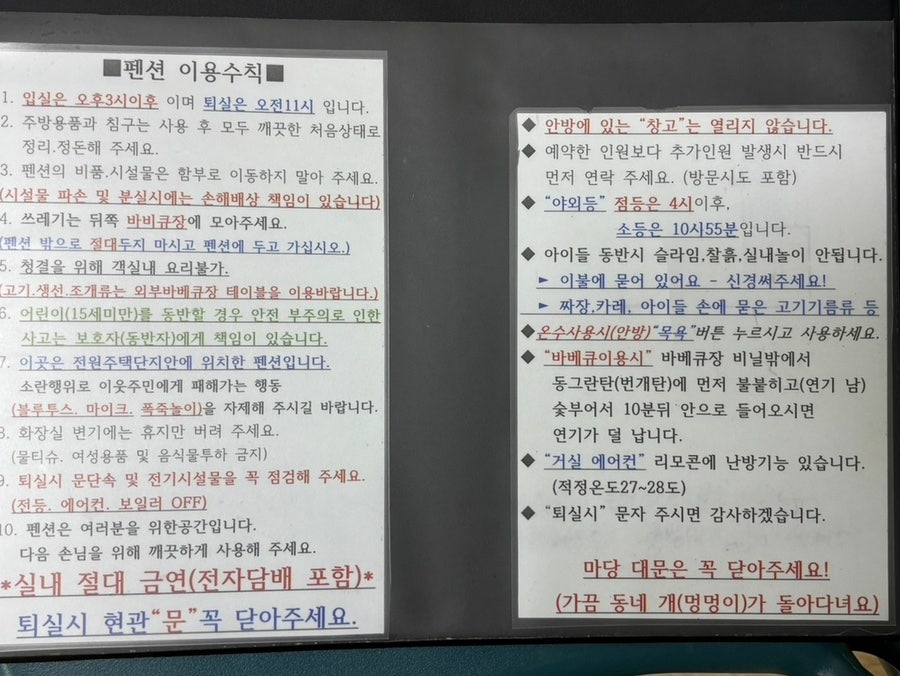 ■펜션 이용수칙■
1. 입실은 오후3시이후 이며 퇴실은 오전11시 입니다.
2. 주방용품과 침구는 사용 후 모두 깨끗한 처음상태로
정리.정돈해 주세요.
3. 펜션의 비품.시설물은 함부로 이동하지 말아 주세요.
(시설물 파손 및 분실시에는 손해배상 책임이 있습니다)
4. 쓰레기는 뒤쪽 바비큐장에 모아주세요.
(펜션 밖으로 절대두지 마시고 펜션에 두고 가십시오.)
5. 청결을 위해 객실내 요리불가.
(고기.생선.조개류는 외부바베큐장 테이블을 이용바랍니다.)
6. 어린이(15세미만)를 동반할 경우 안전 부주의로 인한
사고는 보호자(동반자)에게 책임이 있습니다.
7. 이곳은 전원주택단지안에 위치한 펜션입니다.
소란행위로 이웃주민에게 패해가는 행동
(블루투스. 마이크. 폭죽놀이)을 자제해 주시길 바랍니다.
8. 화장실 변기에는 휴지만 버려 주세요.
(물티슈. 여성용품 및 음식물투하 금지)
9. 퇴실시 문단속 및 전기시설물을 꼭 점검해 주세요.
(전등. 에어컨. 보일러 OFF)
10. 펜션은 여러분을 위한공간입니다.
다음 손님을 위해 깨끗하게 사용해 주세요.
*실내 절대 금연(전자담배 포함)*
퇴실시 현관“문”꼭 닫아주세요.
◆ 안방에 있는 “창고”는 열리지 않습니다.
◆ 예약한 인원보다 추가인원 발생시 반드시
먼저 연락 주세요. (방문시도 포함)
◆ “야외등” 점등은 4시이후,
소등은 10시55분입니다.
◆ 아이들 동반시 슬라임,찰흙,실내놀이 안됩니다.
► 이불에 묻어 있어요 - 신경써주세요!
► 짜장,카레, 아이들 손에 묻은 고기기름류 등
◆온수사용시(안방)“목욕”버튼 누르시고 사용하세요.
◆ “바베큐이용시” 바베큐장 비닐밖에서
동그란탄(번개탄)에 먼저 불붙히고(연기 남)
숯부어서 10분뒤 안으로 들어오시면
연기가 덜 납니다.
◆ “거실 에어컨” 리모콘에 난방기능 있습니다.
(적정온도27~28도)
◆ “퇴실시” 문자 주시면 감사하겠습니다.
마당 대문은 꼭 닫아주세요!
(가끔 동네 개(멍멍이)가 돌아다녀요)